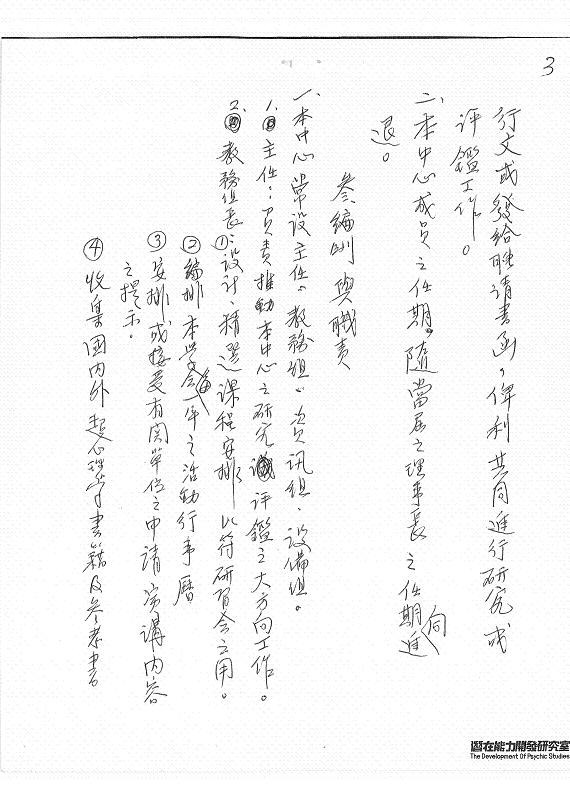 3
行文或發給聘請書函，俾利共同進行研究或
評鑑工作。
二、本中心成員之任期，隨當屆之理事長之任期同進
退。
叁、編制與職責
一、本中心常設主任、教務組、資訊組、設備組。
1. 主任：負責推動本中心之研究評鑑之大方向工作。
2. 教務組長：①設計、精選課程安排，以符研習會之用。
②編排本學會每一年之活動行事曆
③安排或接受有關單位之申請演講內容
之提示。
④收集國內外超心理學書籍及參考書
潛在能力開發研究室
The Development Of Psychic Studies